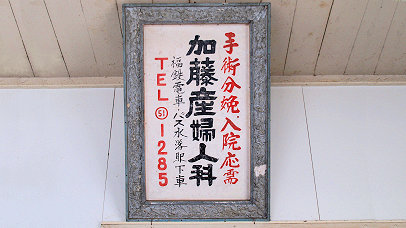 手術分娩、入院応需
加藤産婦人科
福鉄電車・バス水落駅下車
TEL(51)1285